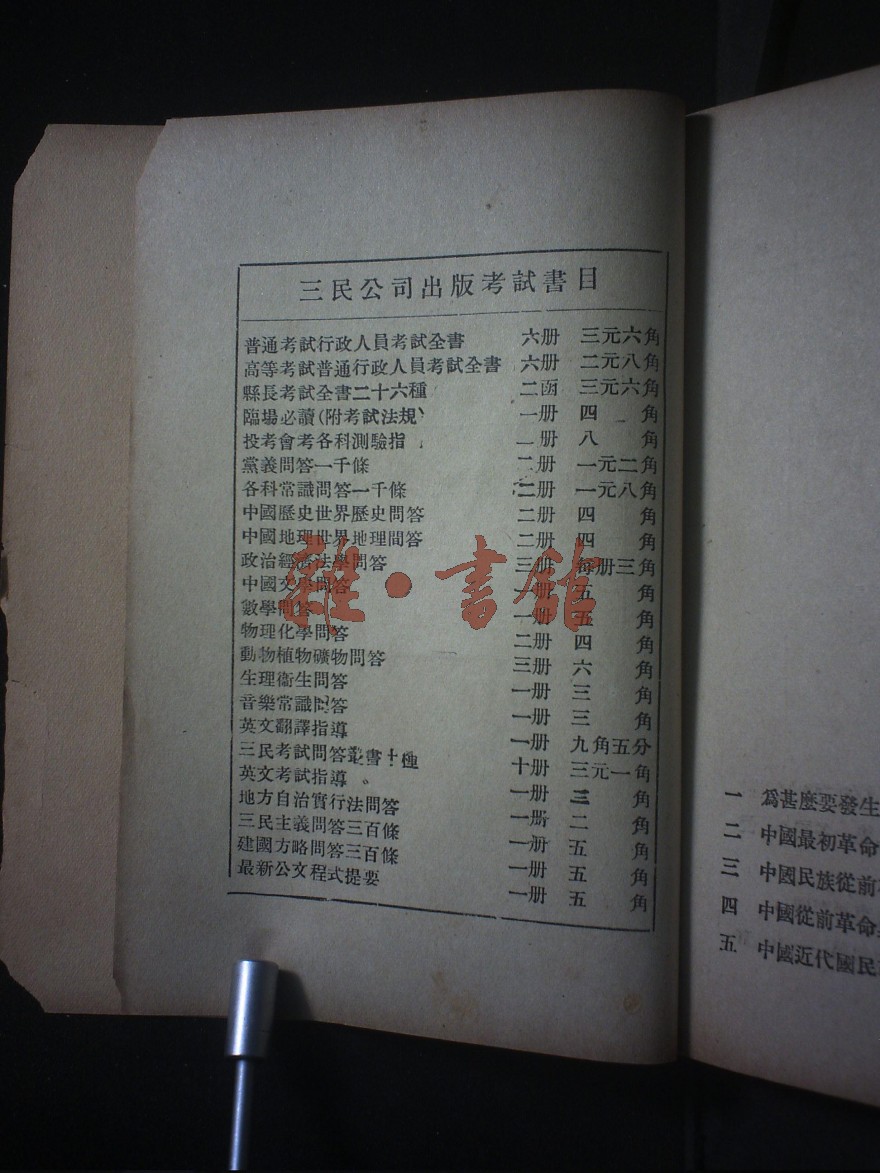 三民公司出版考試書目
普通考試行政人員考試全書 六册 三元六角
高等考試普通行政人員考試全書 六册 二元八角
縣長考試全書二十六種 二函 三元六角
臨場必讀(附考試法規) 一册 四角
投考會考各科測驗指 一册 八角
黨義問答一千條 二册 一元二角
各科常識問答一千條 二册 一元八角
中國歷史世界歷史問答 二册 四角
中國地理世界地理問答 二册 四角
政治經濟法學問答 三册 每册三角
中國文學問答 一册 五角
數學問答 一册 五角
物理化學問答 二册 四角
動物植物礦物問答 三册 六角
生理衞生問答 一册 三角
音樂常識問答 一册 三角
英文翻譯指導 一册 九角五分
三民考試問答叢書十種 十册 三元一角
英文考試指導。 一册 三角
地方自治實行法問答 一册 二角
三民主義問答三百條 一册 五角
建國方略問答三百條 一册 五角
最新公文程式提要 一册 五角
雜·書館
一 爲甚麼要發生
二 中國最初革命
三 中國民族從前
四 中國從前革命
五 中國近代國民